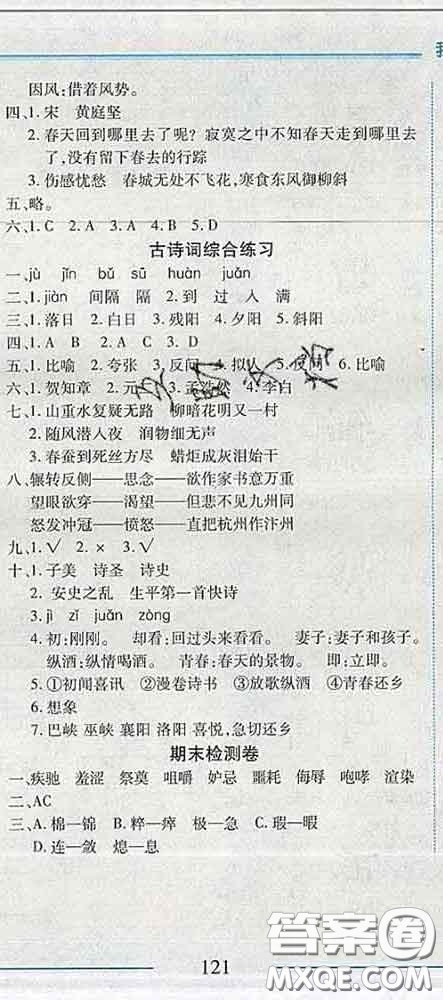 我
因风:借着风势。
四、1.宋 黄庭坚
2.春天回到哪里去了呢？寂寞之中不知春天走到哪里去了,没有留下春去的行踪
3.伤感忧愁 春城无处不飞花,寒食东风御柳斜
五、略。
六、1.C 2.A 3.A 4.B 5.D
古诗词综合练习
一、jù jǐn bǔ sū huàn juǎn
二、1.jiàn 间隔 隔 2.到 过 入 满
三、1.落日 2.白日 3.残阳 4.夕阳 5.斜阳
四、1.D 2.A 3.C 4.B
五、1.比喻 2.夸张 3.反问 4.拟人 5.设问 6.比喻
六、1.贺知章 2.元 3.孟浩然 4.李白
七、1.山重水复疑无路 柳暗花明又一村
2.随风潜入夜 润物细无声
3.春蚕到死丝方尽 蜡炬成灰泪始干
八、辗转反侧——思念——欲作家书意万重
望眼欲穿——渴望——但悲不见九州同
怒发冲冠——愤怒——直把杭州作汴州
九、1.√ 2.× 3.√
十、1.子美 诗圣 诗史
2.安史之乱 生平第一首快诗
3.jì zǐ juǎn zòng
4.初:刚刚。 却看:回过头来看看。 妻子:妻子和孩子。
纵酒:纵情喝酒。 青春:春天的景物。 即:立即。
5.①初闻喜讯 ②漫卷诗书 ③放歌纵酒 ④青春还乡
6.想象
7.巴峡 巫峡 襄阳 洛阳 喜悦,急切还乡
期末检测卷
一、疾驰 羞涩 祭奠 咀嚼 妒忌 噩耗 侮辱 咆哮 渲染
二、AC
三、A.棉—锦 B.粹—瘁 极—急 C.瑕—暇
D.连—敛 熄—息
121
答案圈
MXQE.COM